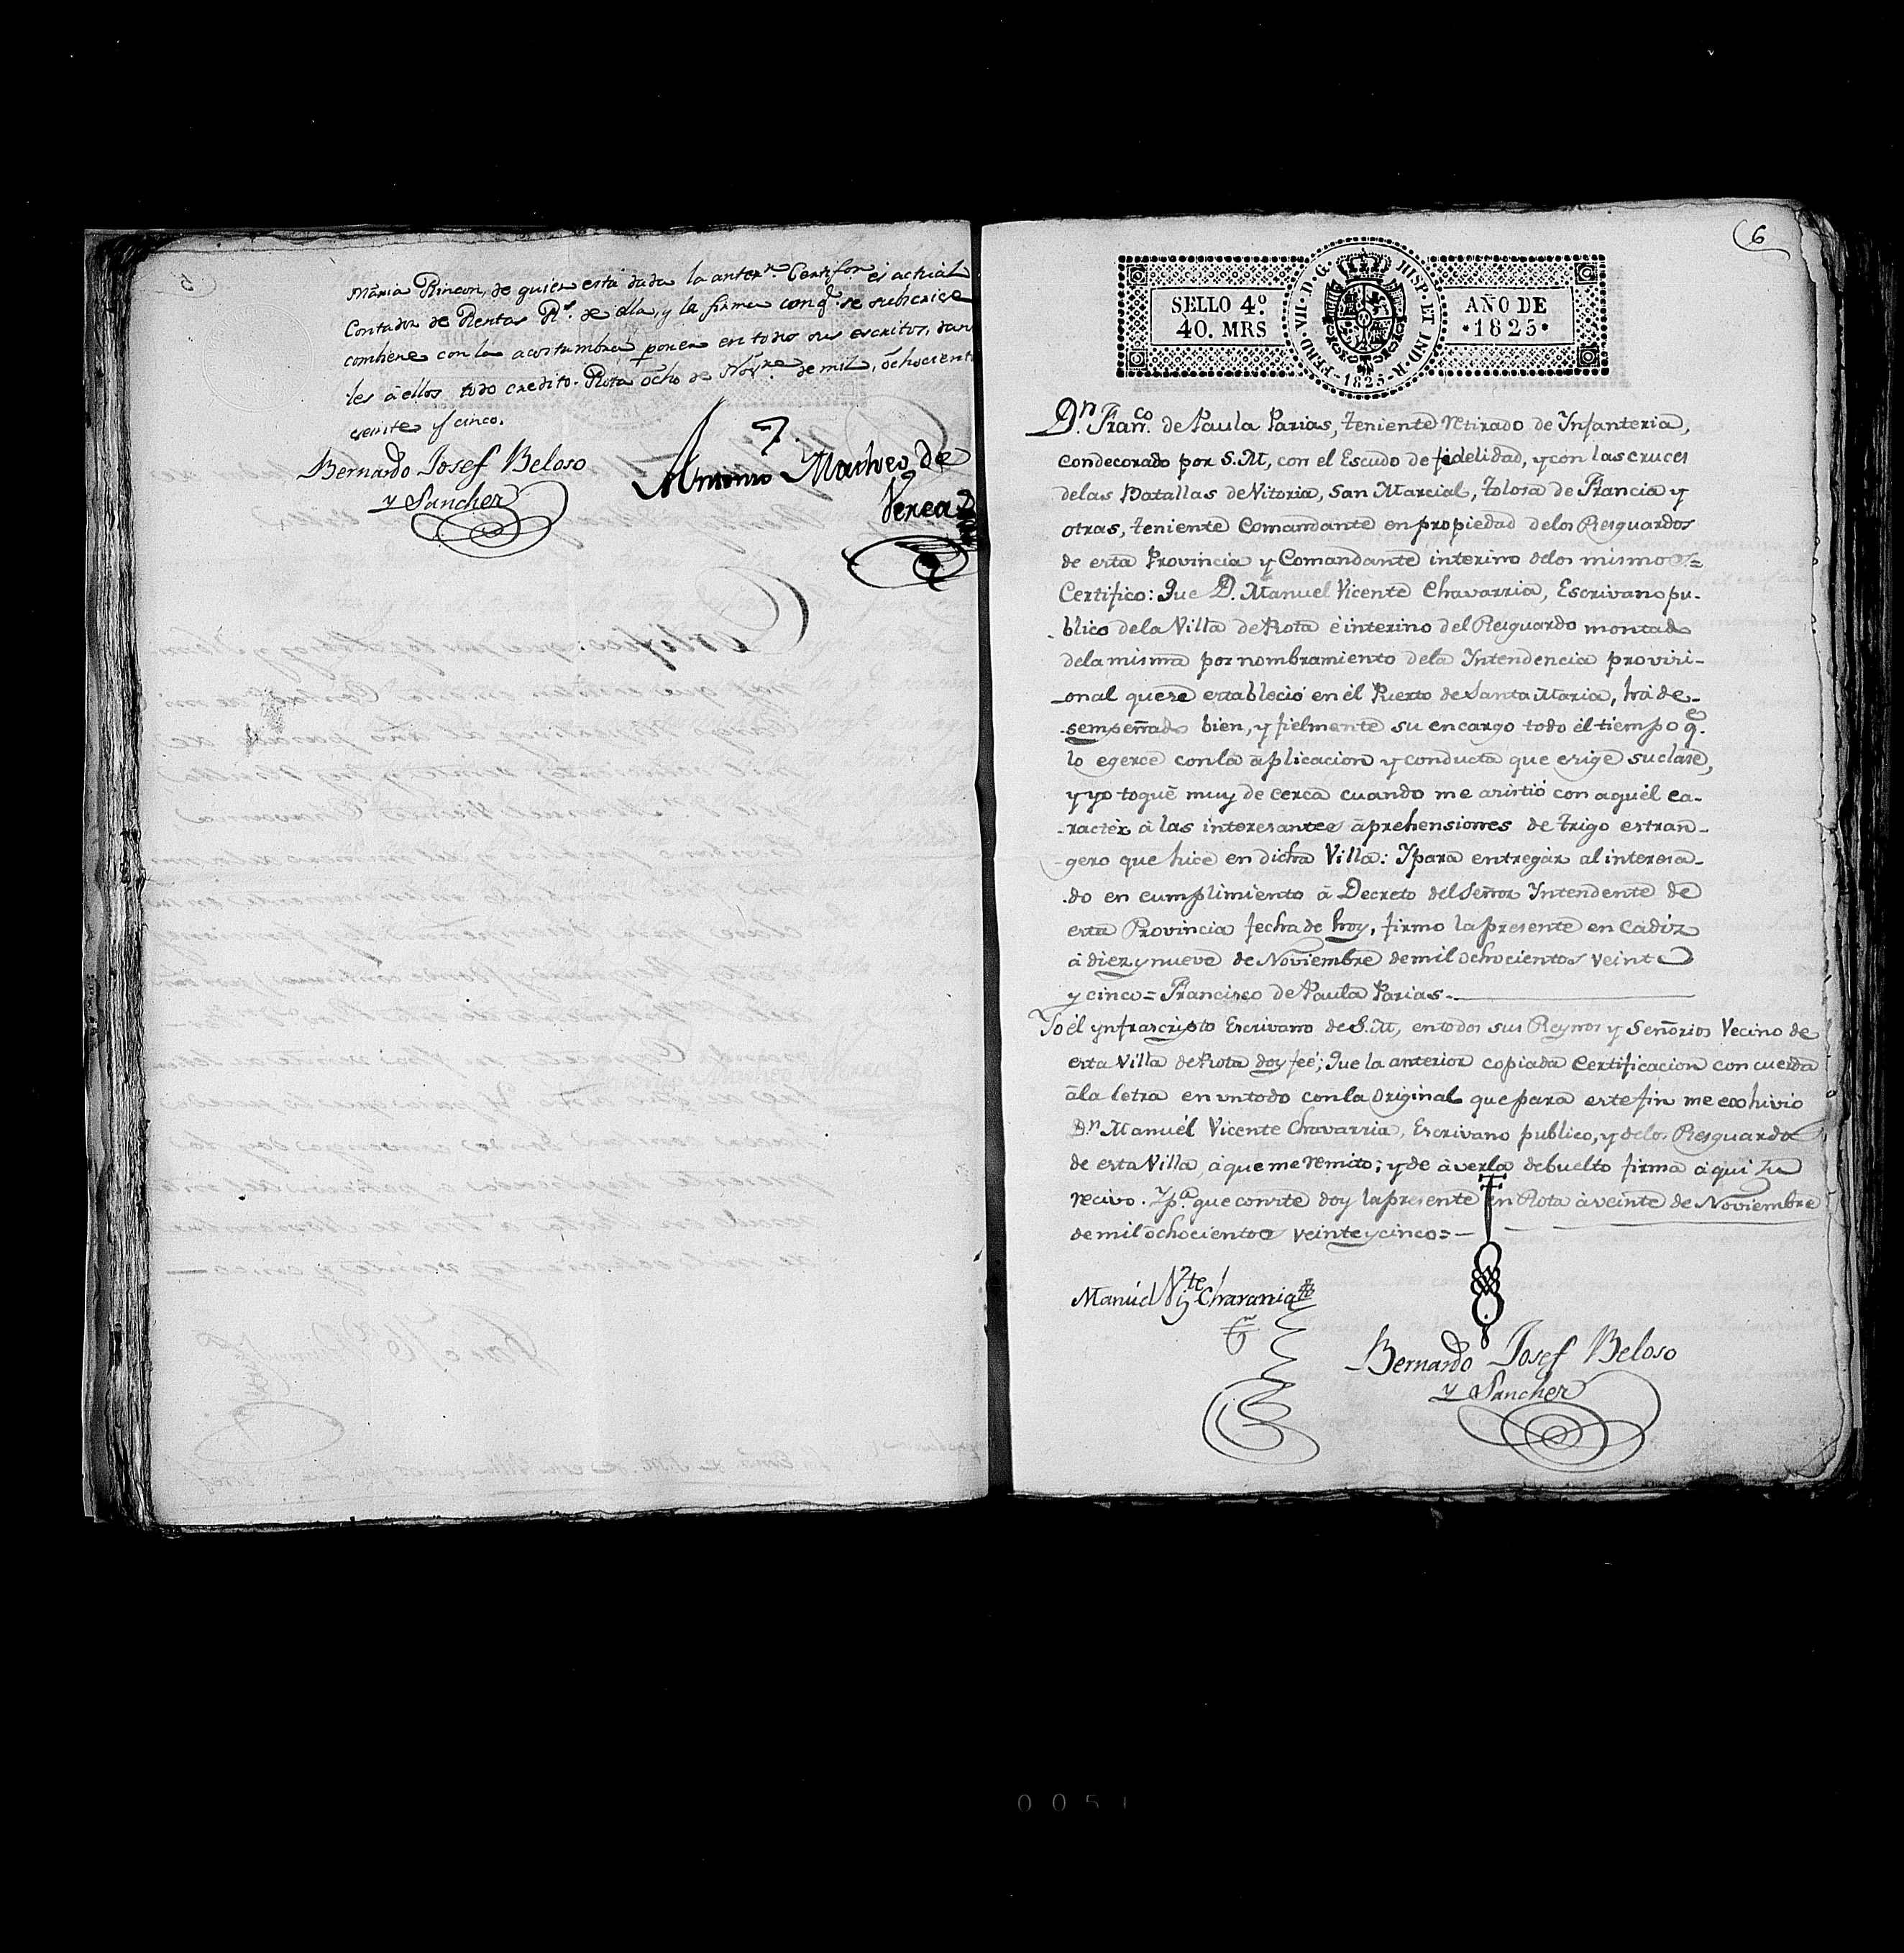 Maria Rincon, de quien está dada la anterr. Certifon. es actual
Contador de Rentas Rs. de ella, y la firma conq. se subcrive
combiene con la acostumbra poner en todos sus escritos, dan
les á ellos todo credito. Rota ocho de Novre. de mil, ochocient
veinte y cinco.
Bernardo Josef Beloso
y Sanchez
Antonio Matheo de
Verea
6
SELLO 4º.
40. MRS
FERD. VII. D. G. HISP. ET IND. R.
1825
AÑO DE
1825
Dn. Franco. de Paula Parias, teniente retirado de Infanteria,
condecorado por S.M, con el Escudo de fidelidad, y con las cruces
delas Batallas de Vitoria, San Marcial, Tolosa de Francia y
otras, teniente Comandante en propiedad delos Resguardos
de esta Provincia y Comandante interino delos mismos=
Certifico: Que D. Manuel Vicente Chavarria, Escrivano pu-
blico dela Villa de Rota é interino del Resguardo montado
dela misma por nombramiento dela Intendencia provisi-
onal que se estableció en él Puerto de Santa Maria, há de-
sempeñado bien, y fielmente su encargo todo él tiempo q.e
lo egerce con la aplicacion y conducta que exige su clase,
y yo toqué muy de cerca cuando me asistió con aquel ca-
racter á las interesantes aprehensiones de trigo estran-
gero que hice en dicha Villa: Y para entregar al interesa-
do en cumplimiento á Decreto del Señor Intendente de
esta Provincia fecha de hoy, firmo la presente en Cadiz
á diez y nueve de Noviembre de mil ochocientos veinte
y cinco = Francisco de Paula Parias.
Yo él ynfrascripto Escrivano de S.M, en todos sus Reynos y Señorios Vecino de
esta Villa de Rota doy feé; Que la anterior copiada Certificacion concuerda
á la letra en un todo con la Original que para este fin me exhivio
Dn. Manuél Vicente Chavarria, Escrivano publico, y delos Resguardos
de esta Villa, á que me remito; y de áverla debuelto firma áqui su
recivo. Ypa. que conste doy la presente en Rota á veinte de Noviembre
de mil ochocientos veinte y cinco =
Manuel Vte. Chavarria
Bernardo Josef Beloso
y Sanchez
0051